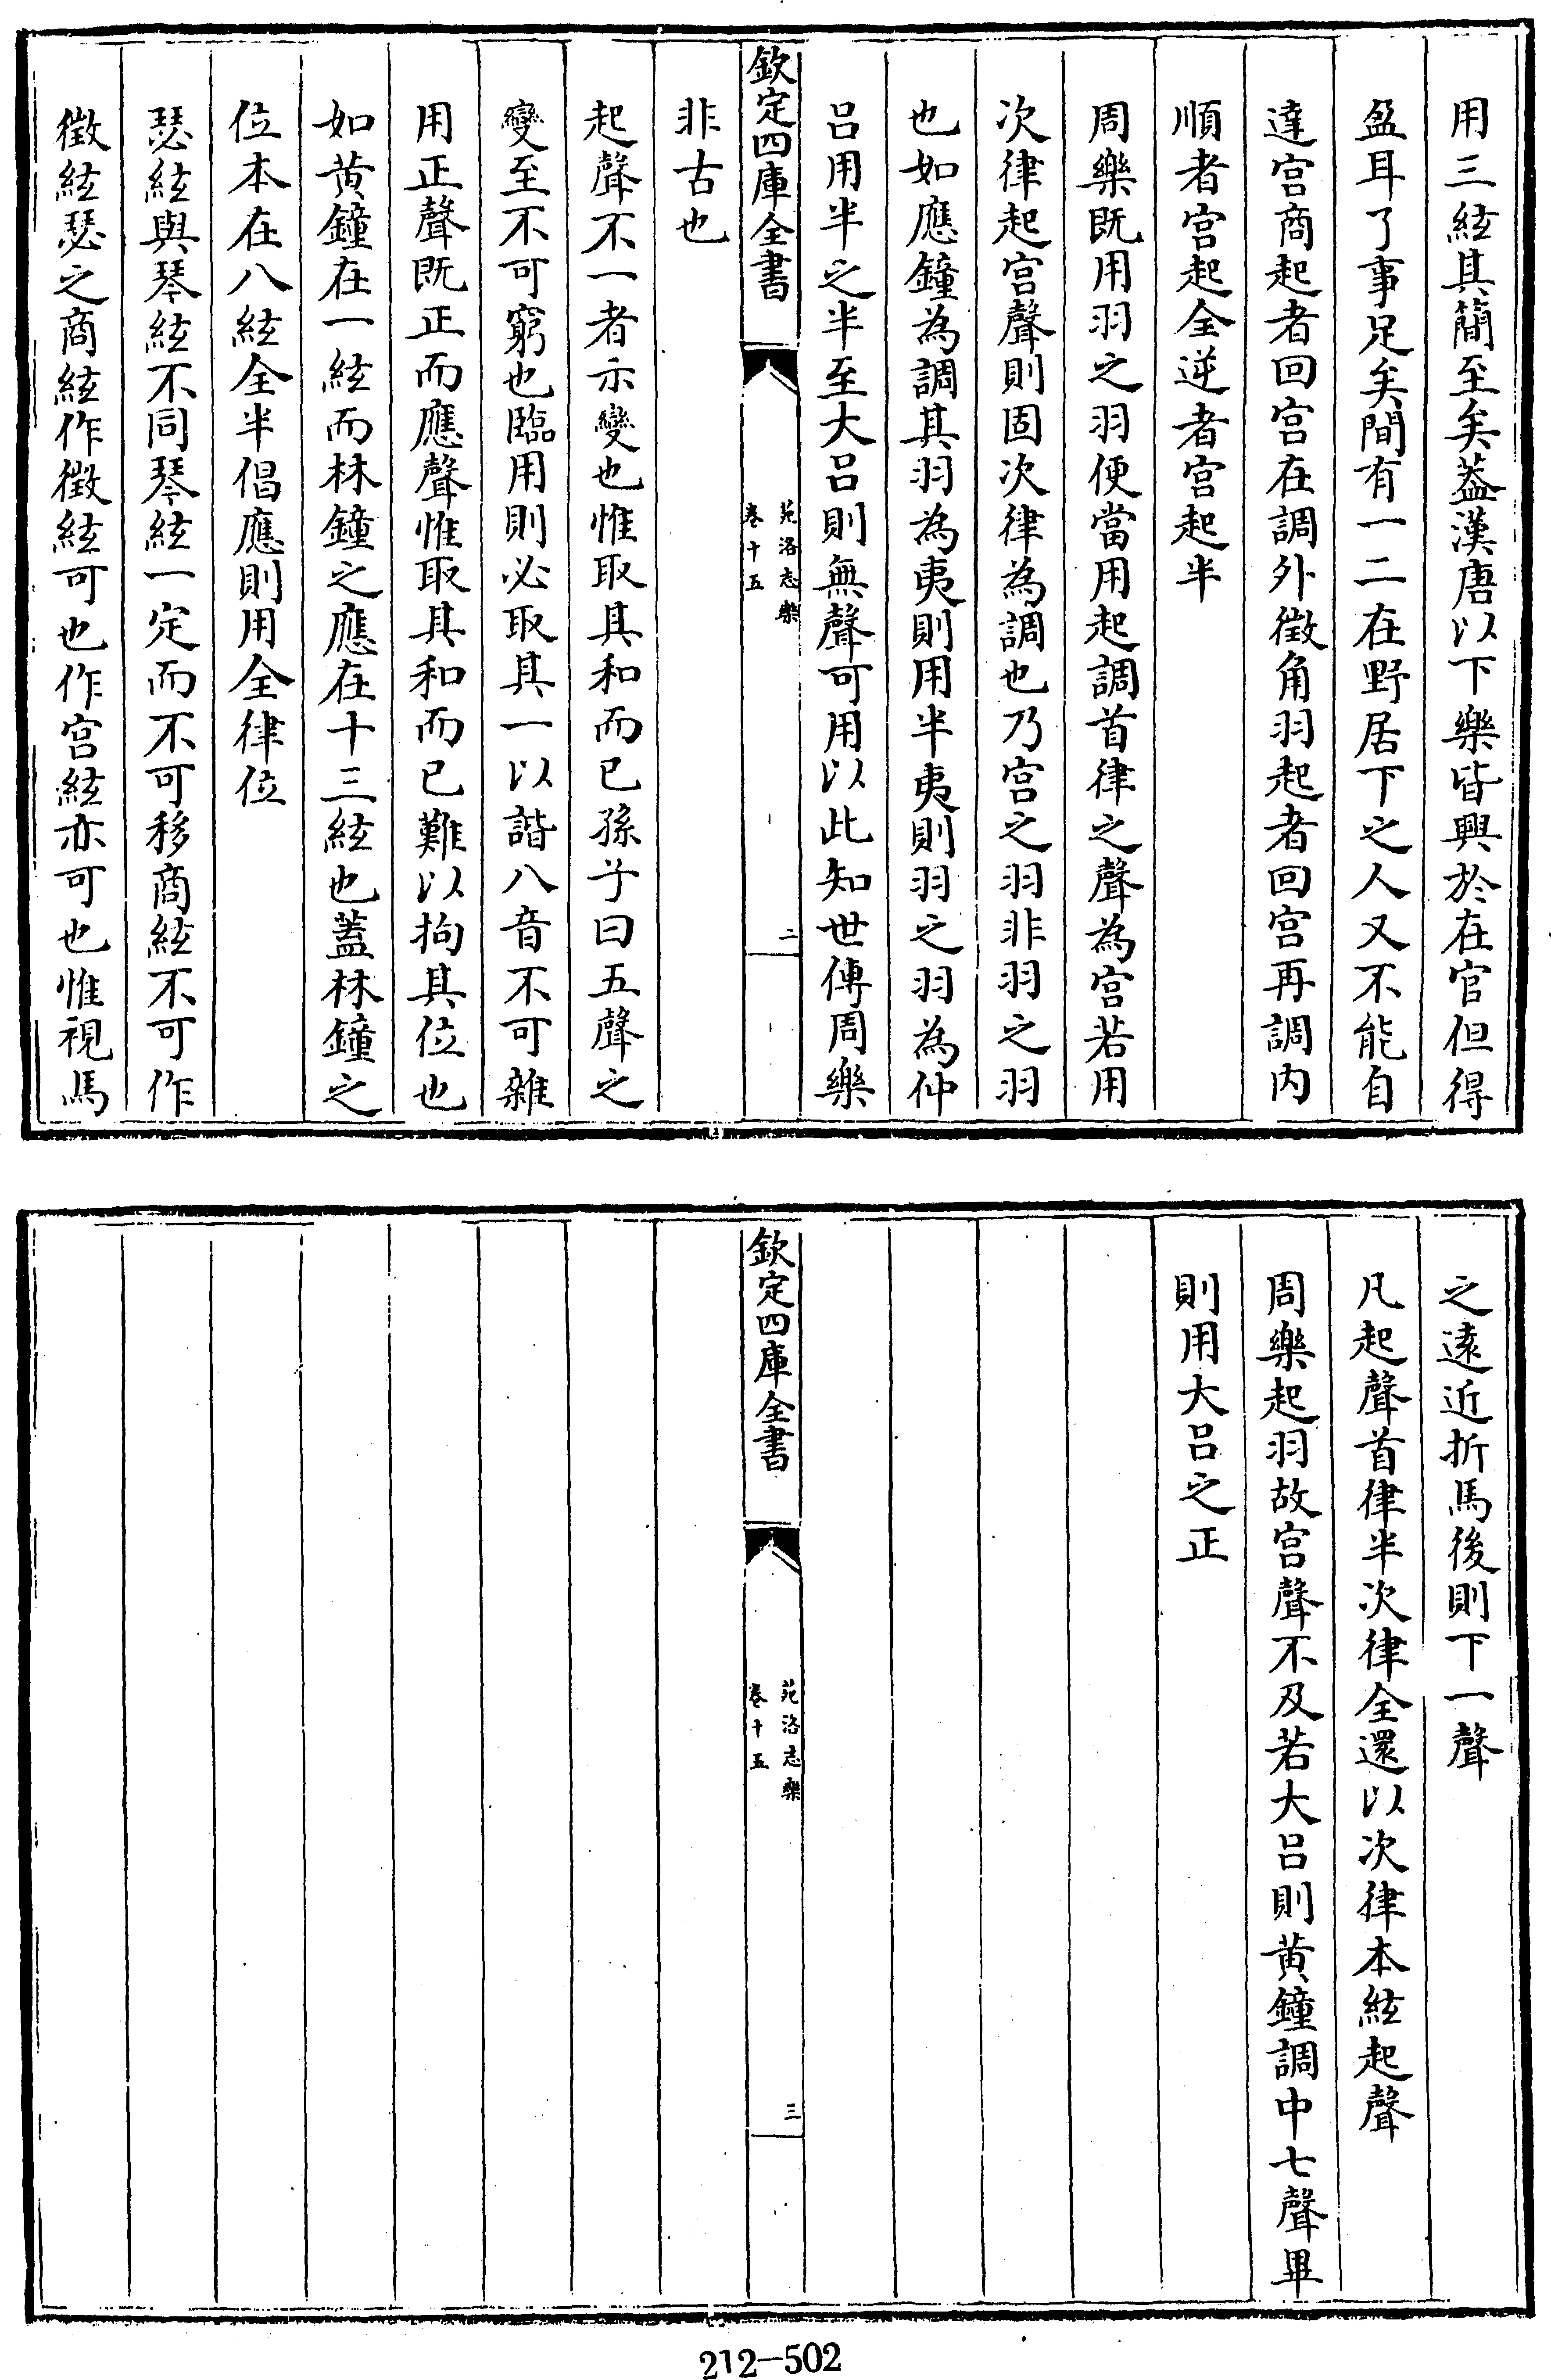 用三絃其簡至矣葢漢唐以下樂皆興於在官但得
盈耳了事足矣間有一二在野居下之人又不能自
達宫商起者回宫在調外徵角羽起者回宫再調内
順者宫起全逆者宫起半
周樂既用羽之羽便當用起調首律之聲為宫若用
次律起宫聲則固次律為調也乃宫之羽非羽之羽
也如應鐘為調其羽為夷則用半夷則羽之羽為仲
吕用半之半至大吕則無聲可用以此知世傳周樂
欽定四庫全書
苑洛志樂
卷十五
二
非古也
起聲不一者示變也惟取其和而已孫子曰五聲之
變至不可窮也臨用則必取其一以諧八音不可雜
用正聲既正而應聲惟取其和而已難以拘其位也
如黄鐘在一絃而林鐘之應在十三絃也蓋林鐘之
位本在八絃全半倡應則用全律位
瑟絃與琴絃不同琴絃一定而不可移商絃不可作
徵絃瑟之商絃作徵絃可也作宫絃亦可也惟視馬
之遠近折馬後則下一聲
凡起聲首律半次律全還以次律本絃起聲
周樂起羽故宫聲不及若大吕則黄鐘調中七聲畢
則用大吕之正
欽定四庫全書
苑洛志樂
卷十五
三
212-502